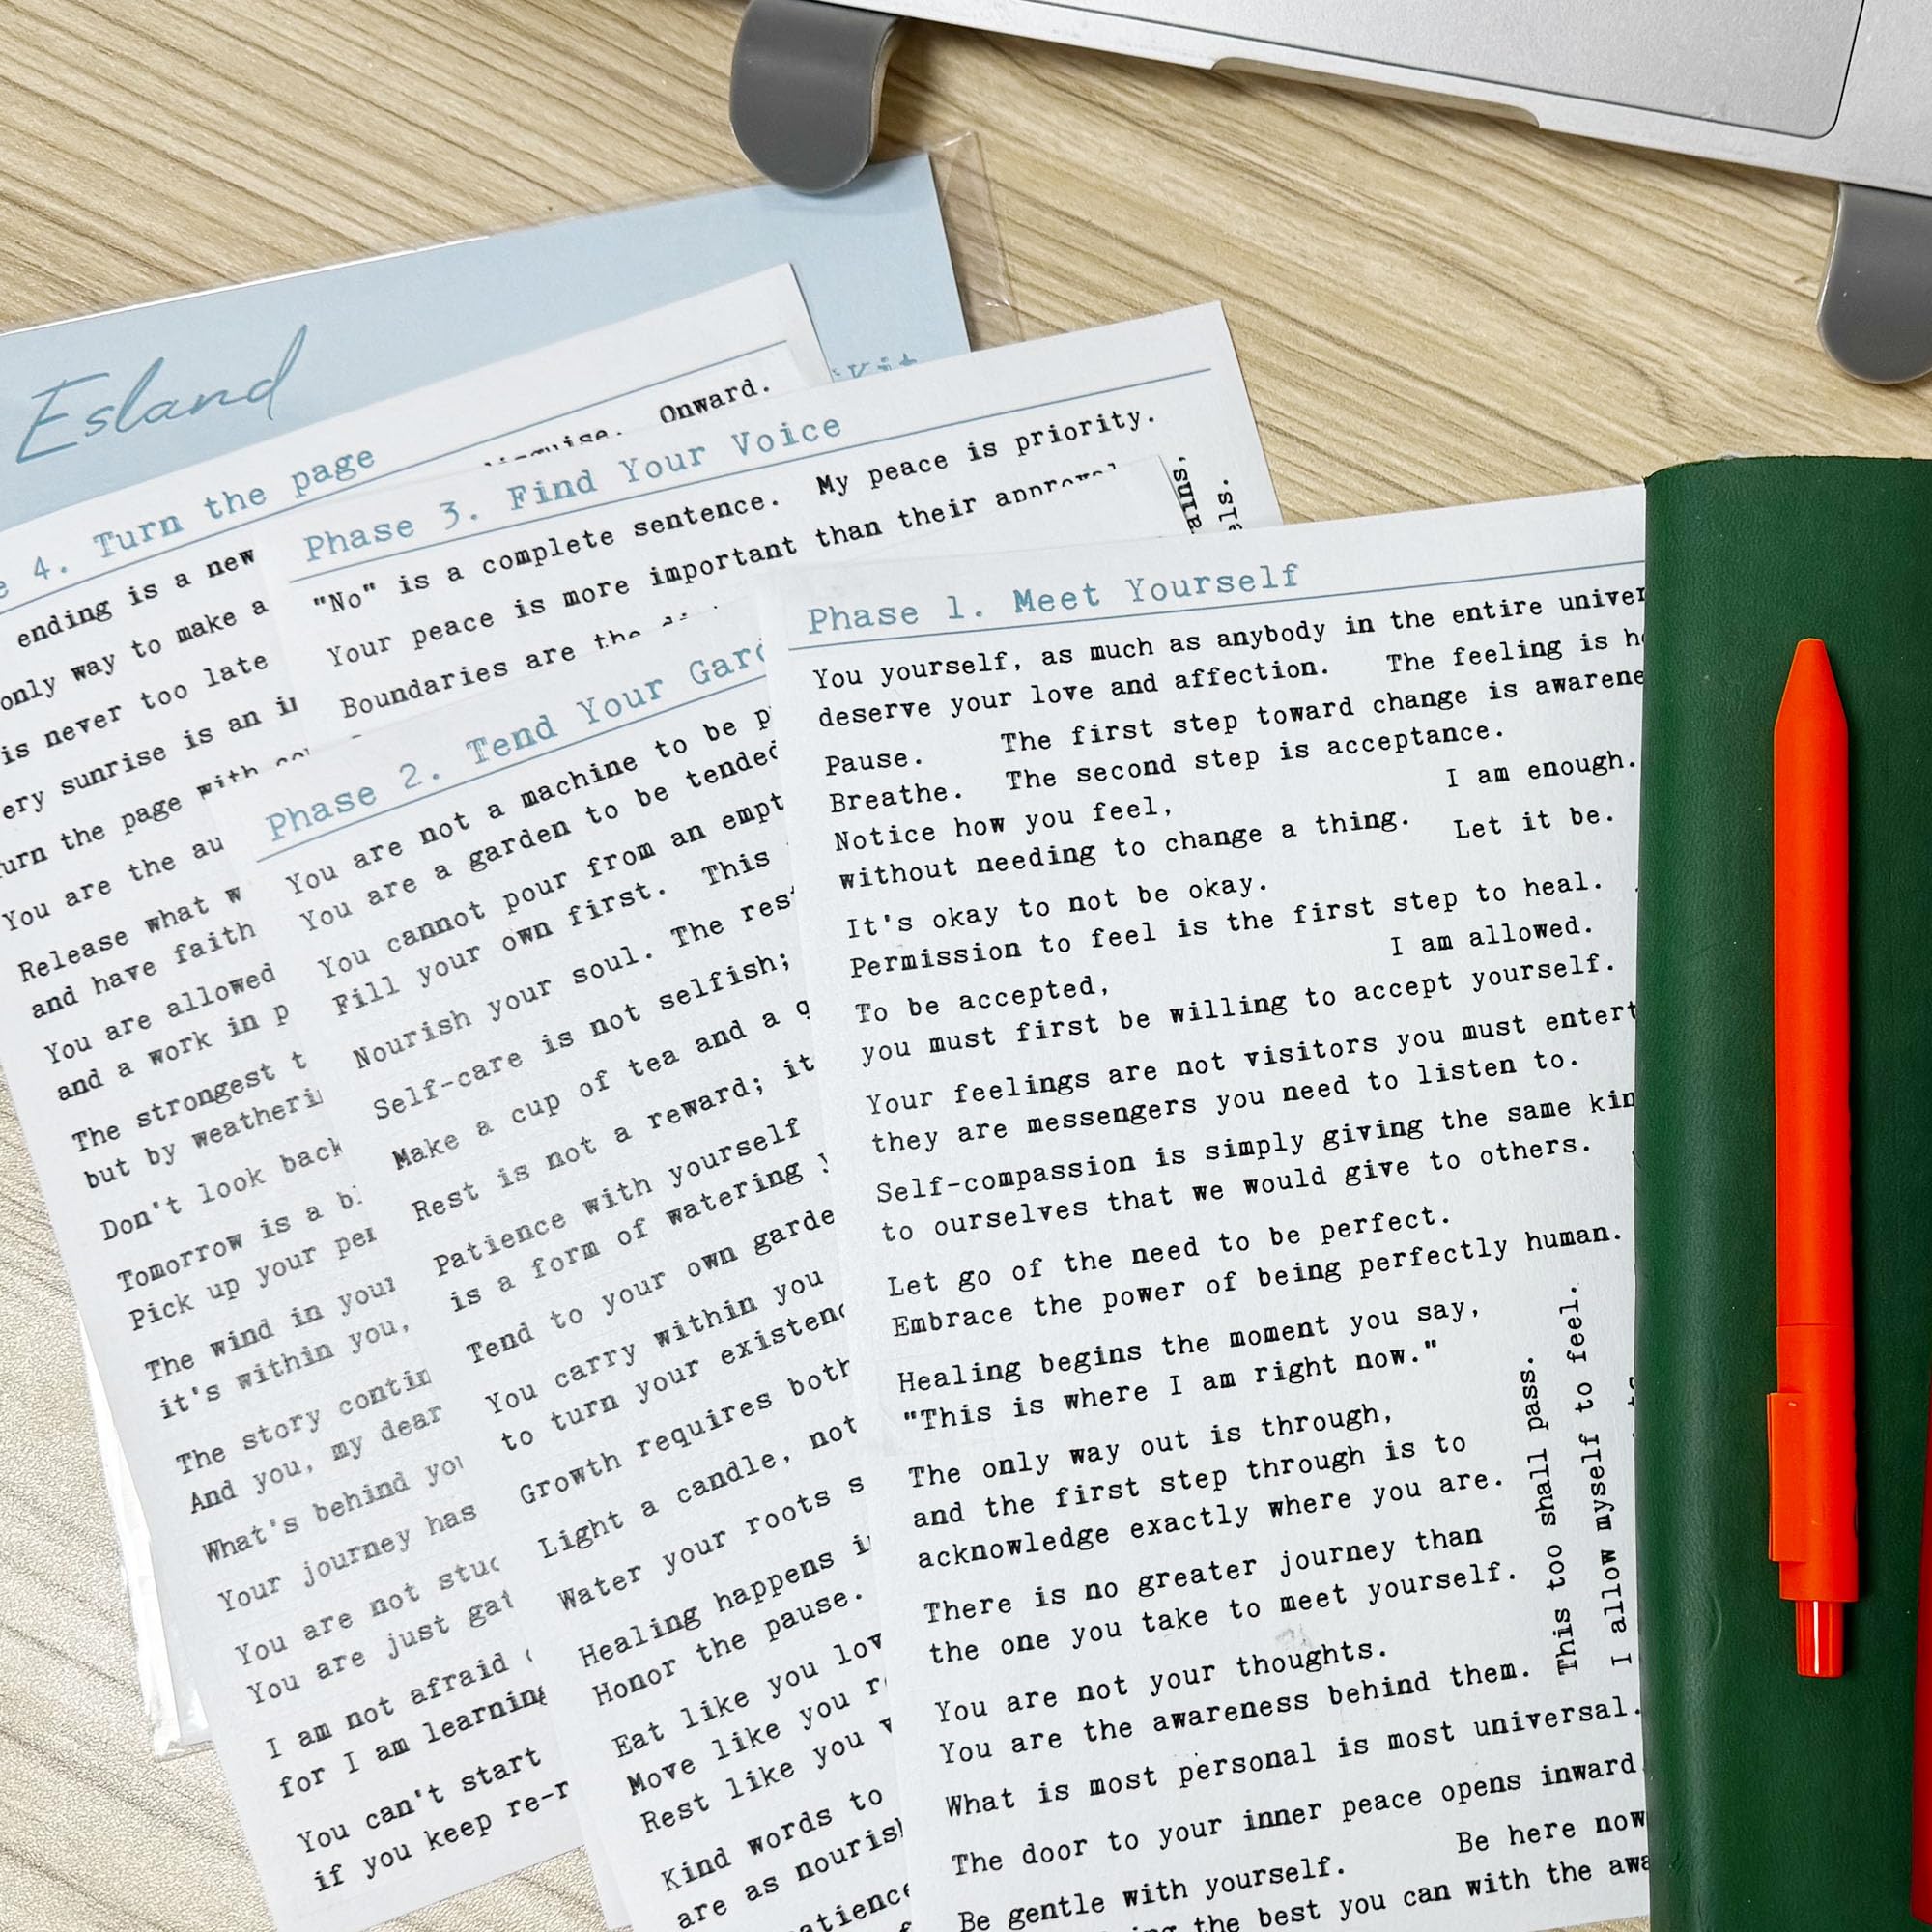 Esland
Kit
4. Turn the page
Onward.
ending is a new
only way to make a
is never too late
sunrise is an
the page with
You are the
Release what
and have faith
You are allowed
and a work in
The strongest
but by
Don't look back
Tomorrow is a
Pick up your
The wind in your
it's within you,
The story
And you, my dear
What's behind you
Your journey has
You are not
You are just
I am not afraid
for I am learning
You can't start
if you keep
Phase 3. Find Your Voice
"No" is a complete sentence. My peace is priority.
Your peace is more important than their approval
Boundaries are the
Phase 2. Tend Your
You are not a machine to be
You are a garden to be tended
You cannot pour from an
Fill your own first. This
Nourish your soul. The
Self-care is not selfish;
Make a cup of tea and a
Rest is not a reward; it
Patience with yourself
is a form of watering
Tend to your own
You carry within you
to turn your
Growth requires both
Light a candle, not
Water your roots
Healing happens
Honor the pause.
Eat like you
Move like you
Rest like you
Kind words to
are as
Phase 1. Meet Yourself
You yourself, as much as anybody in the entire
deserve your love and affection. The feeling is
Pause. The first step toward change is
Breathe. The second step is acceptance.
Notice how you feel, I am enough.
without needing to change a thing. Let it be.
It's okay to not be okay.
Permission to feel is the first step to heal.
I am allowed.
To be accepted,
you must first be willing to accept yourself.
Your feelings are not visitors you must
they are messengers you need to listen to.
Self-compassion is simply giving the same
to ourselves that we would give to others.
Let go of the need to be perfect.
Embrace the power of being perfectly human.
Healing begins the moment you say,
"This is where I am right now."
The only way out is through,
and the first step through is to
acknowledge exactly where you are.
There is no greater journey than
the one you take to meet yourself.
You are not your thoughts.
You are the awareness behind them.
What is most personal is most universal.
The door to your inner peace opens inward
Be here now
Be gentle with yourself.
the best you can with the
This too shall pass.
I allow myself to feel.